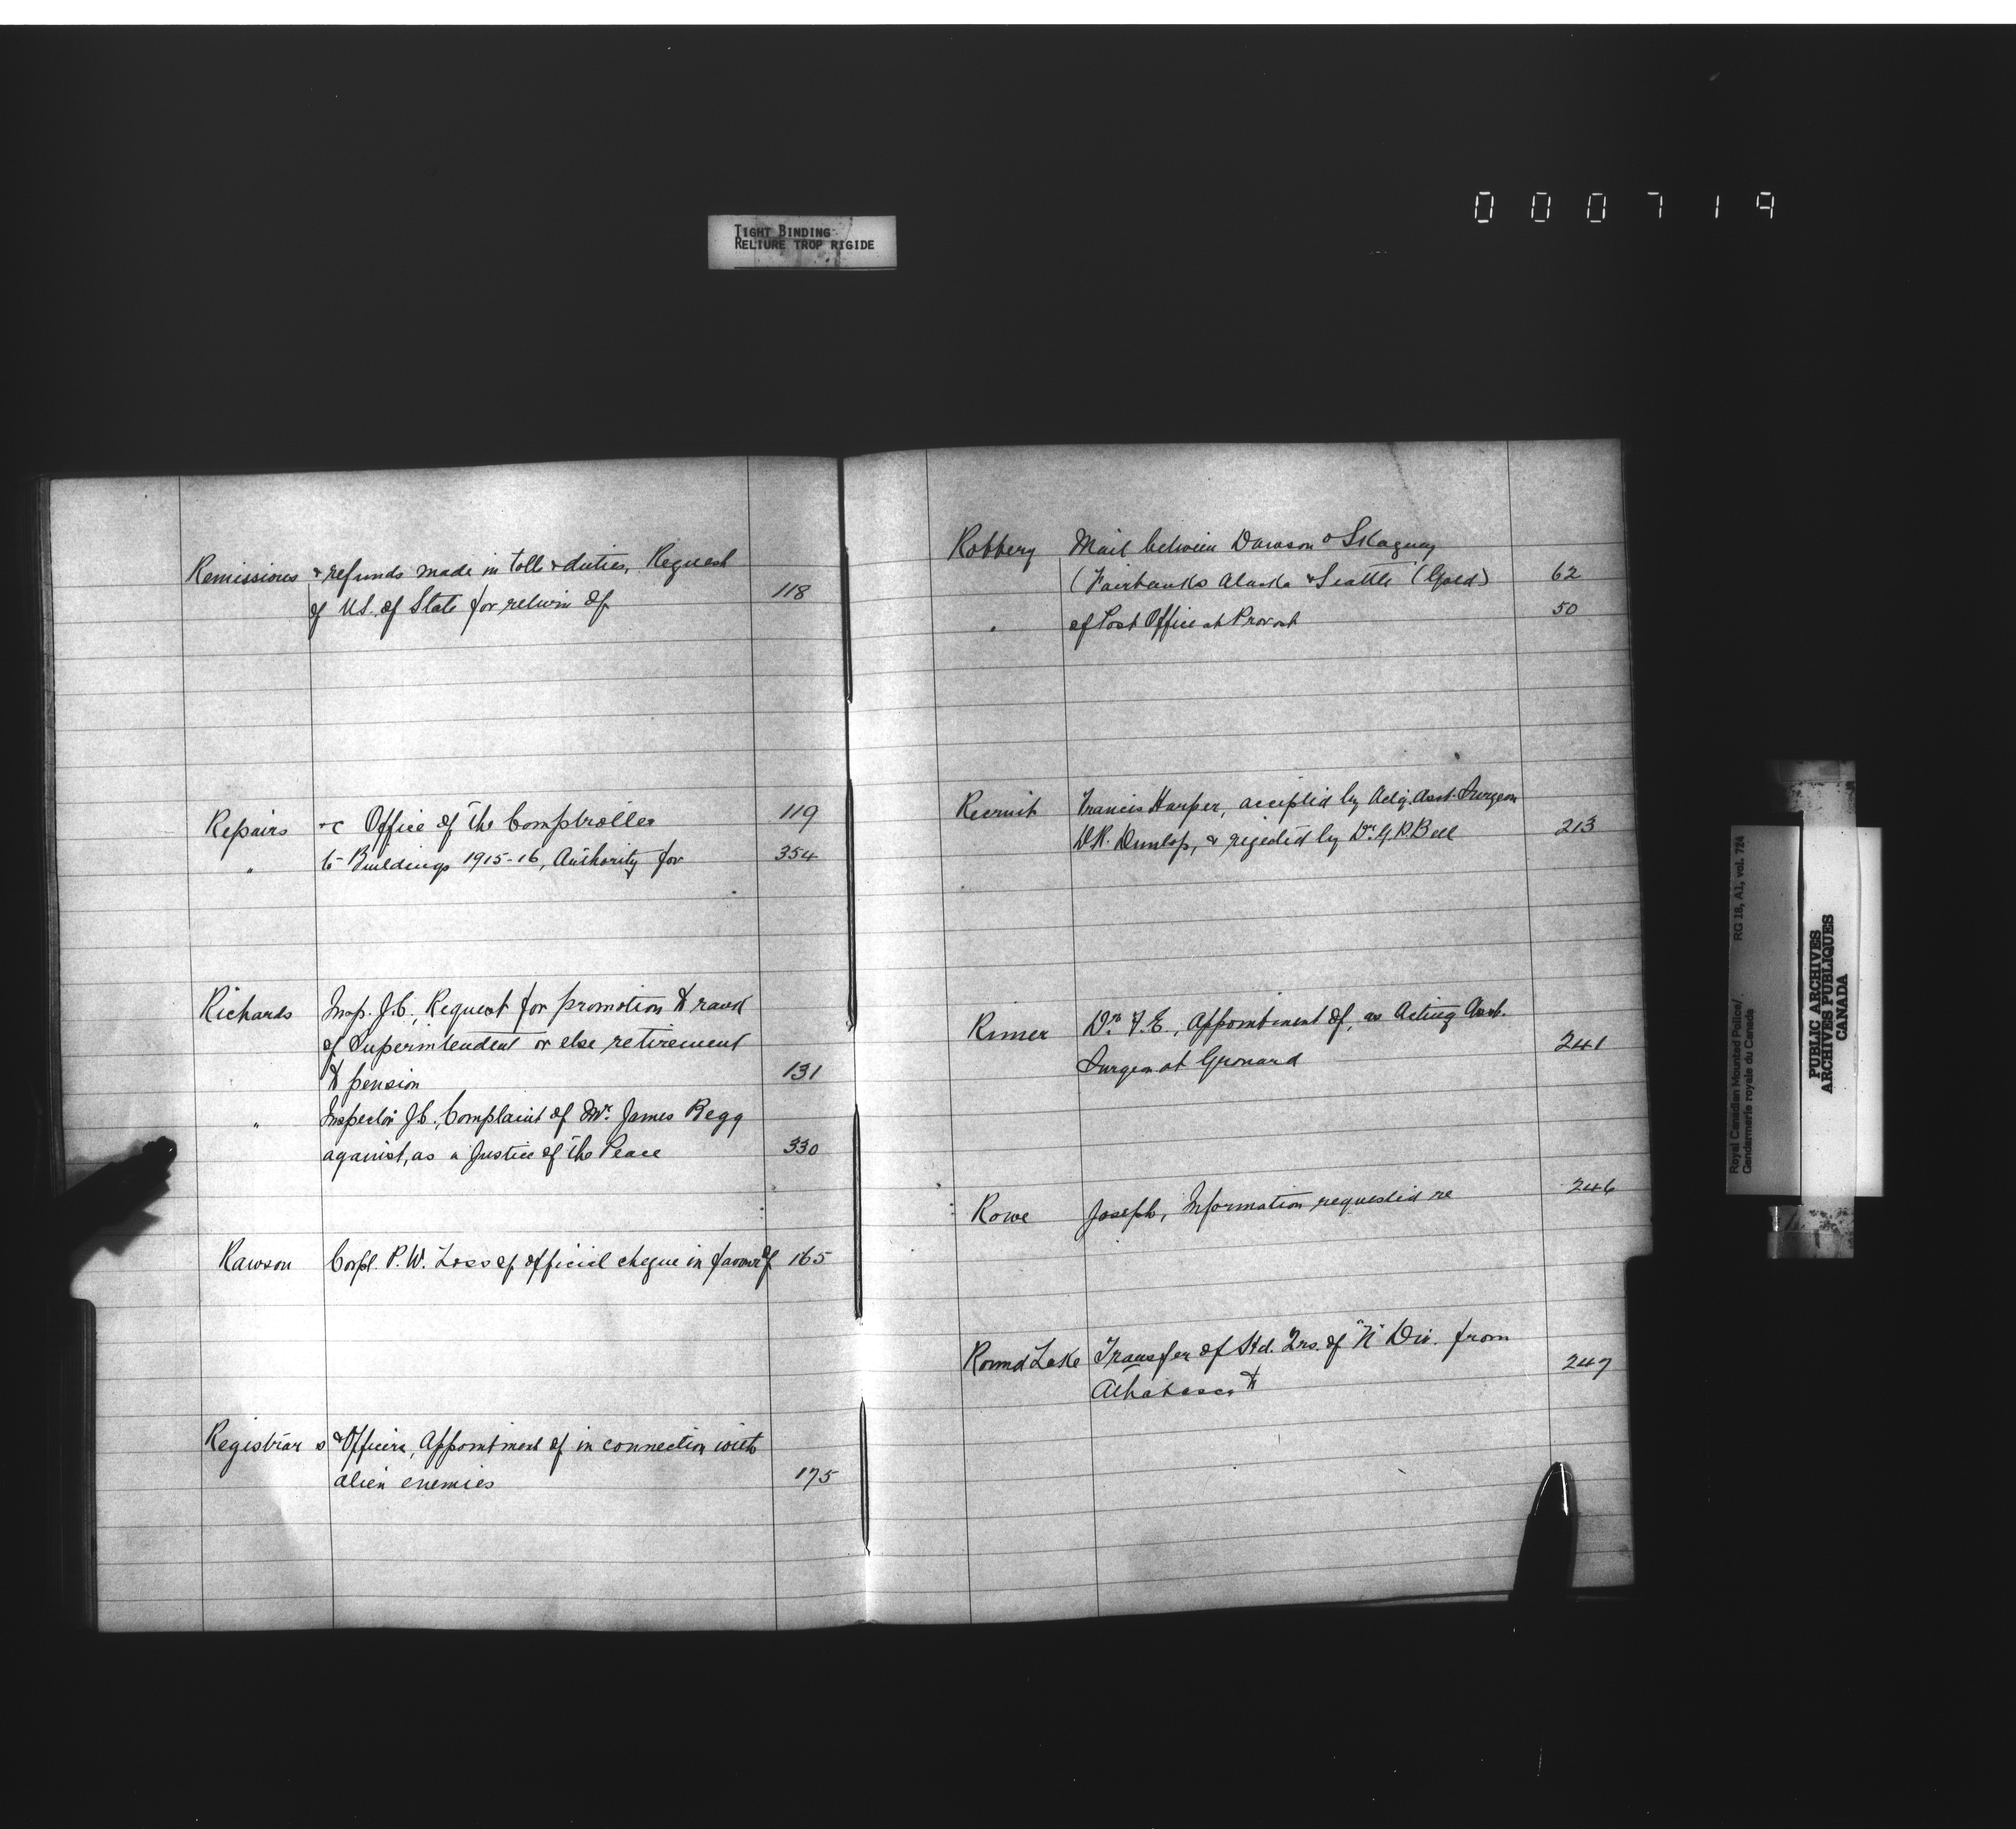 000719
TIGHT BINDING
RELIURE TROP RIGIDE
Remissions & refunds made in tolls & duties, Request
of US. of State for return of 118
Repairs &c Office of the Comptroller 119
" to Buildings 1915-16, Authority for 354
Richards Insp. J.C., Request for promotion to rank
of Superintendent or else retirement
to pension 131
" Inspector J.C., Complaint of Mr. James Begg
against, as a Justice of the Peace 330
Rawson Corpl. P.W. Loss of official cheque in favour of 165
Registrars & Officers, Appointment of in connection with
alien enemies 175
Robbery Mail between Dawson & Skaguay
(Fairbanks Alaska & Seattle (Gold) 62
" of Post Office at Provost 50
Recruit Francis Harper, accepted by Actg. Asst. Surgeon
Dr. Dunlop, & rejected by Dr. G.P. Bell 213
Rimer Dr. F.E., Appointment of, as Acting Asst.
Surgeon at Grouard 241
Rowe Joseph, Information requested re 246
Round Lake Transfer of Hd. Qrs. of "N" Div. from
Athabasca to 247
Royal Canadian Mounted Police/
Gendarmerie royale du Canada
RG 18, A1, vol. 724
PUBLIC ARCHIVES
ARCHIVES PUBLIQUES
CANADA